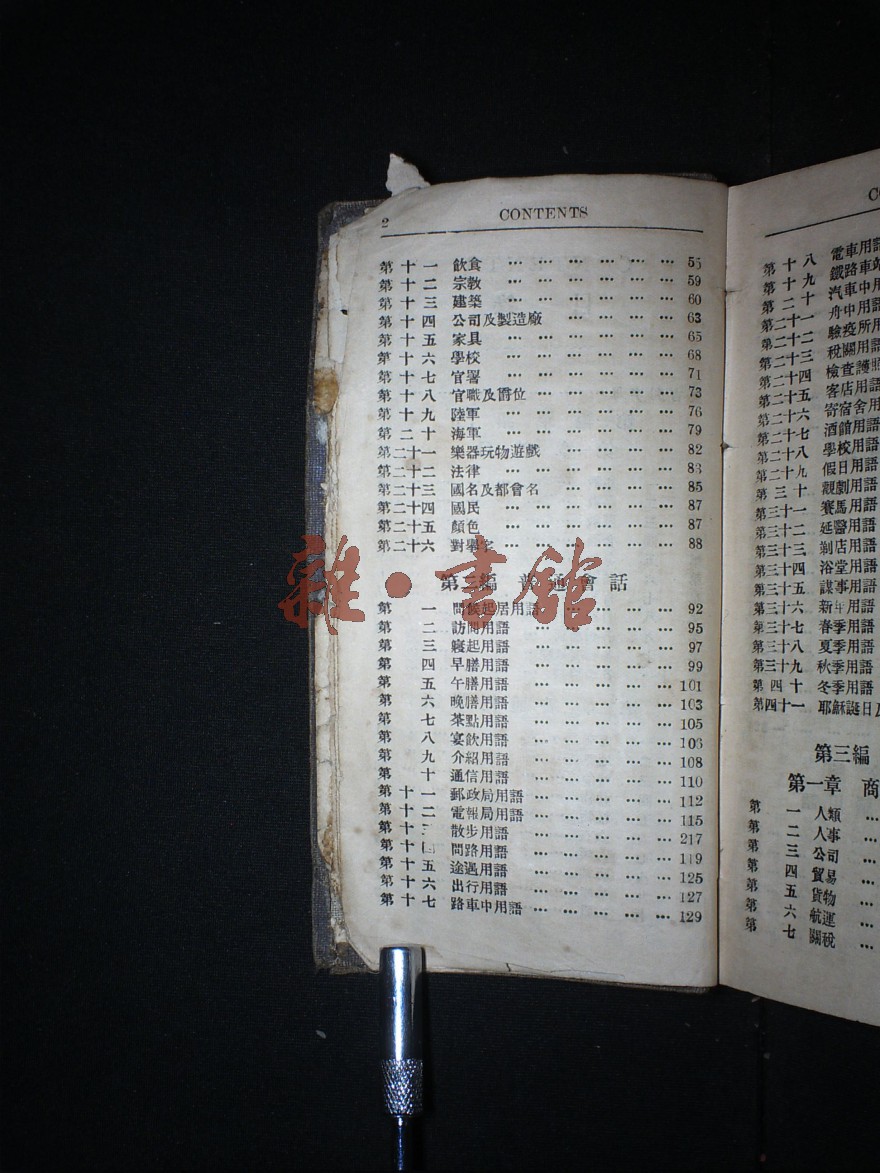 2 CONTENTS
第十一 飲食 … … … … … … 55
第十二 宗教 … … … … … … 59
第十三 建築 … … … … … … 60
第十四 公司及製造廠 … … … … 63
第十五 家具 … … … … … … 65
第十六 學校 … … … … … … 68
第十七 官署 … … … … … … 71
第十八 官職及爵位 … … … … 73
第十九 陸軍 … … … … … … 76
第二十 海軍 … … … … … … 79
第二十一 樂器玩物遊戲 … … … … 82
第二十二 法律 … … … … … … 83
第二十三 國名及都會名 … … … … 85
第二十四 國民 … … … … … … 87
第二十五 顏色 … … … … … … 87
第二十六 對舉字 … … … … … … 88
第二編 普通會話
第一 問候起居用語 … … … … 92
第二 訪問用語 … … … … … 95
第三 寢起用語 … … … … … 97
第四 早膳用語 … … … … … 99
第五 午膳用語 … … … … … 101
第六 晚膳用語 … … … … … 103
第七 茶點用語 … … … … … 105
第八 宴飲用語 … … … … … 106
第九 介紹用語 … … … … … 108
第十 通信用語 … … … … … 110
第十一 郵政局用語 … … … … … 112
第十二 電報局用語 … … … … … 115
第十三 散步用語 … … … … … 217
第十四 問路用語 … … … … … 119
第十五 途遇用語 … … … … … 125
第十六 出行用語 … … … … … 127
第十七 路車中用語 … … … … … 129
雜·書館
第十八 電車用語
第十九 鐵路車站
第二十 汽車中用
第二十一 舟中用語
第二十二 驗疫所用
第二十三 稅關用語
第二十四 檢查護照
第二十五 客店用語
第二十六 寄宿舍用
第二十七 酒館用語
第二十八 學校用語
第二十九 假日用語
第三十 觀劇用語
第三十一 賽馬用語
第三十二 延醫用語
第三十三 剃店用語
第三十四 浴堂用語
第三十五 謀事用語
第三十六 新年用語
第三十七 春季用語
第三十八 夏季用語
第三十九 秋季用語
第四十 冬季用語
第四十一 耶穌誕日及
第三編
第一章 商
第一 人類 …
第二 人事 …
第三 公司 …
第四 貿易 …
第五 貨物 …
第六 航運 …
第七 關稅 …